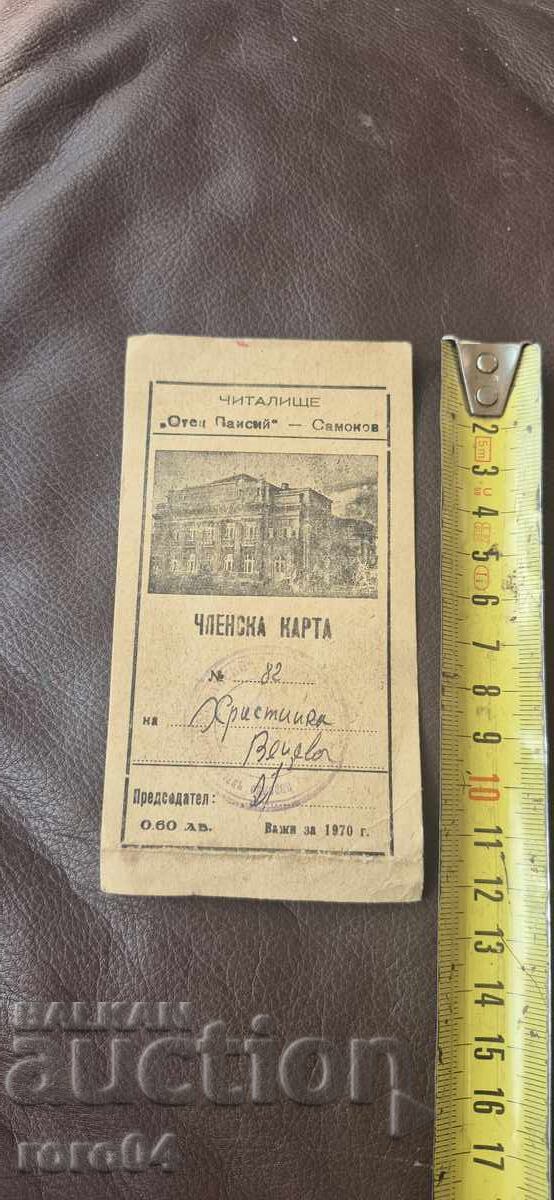 ЧИТАЛИЩЕ
„Отец Паисий“ — Самоков
ЧЛЕНСКА КАРТА
№ 82
на Христинка
Вецева
Председател:
0.60 лв. Важи за 1970 г.
2
3
4
5
6
7
8
9
10
11
12
13
14
15
16
17
5m
BALKAN
auction
roro04